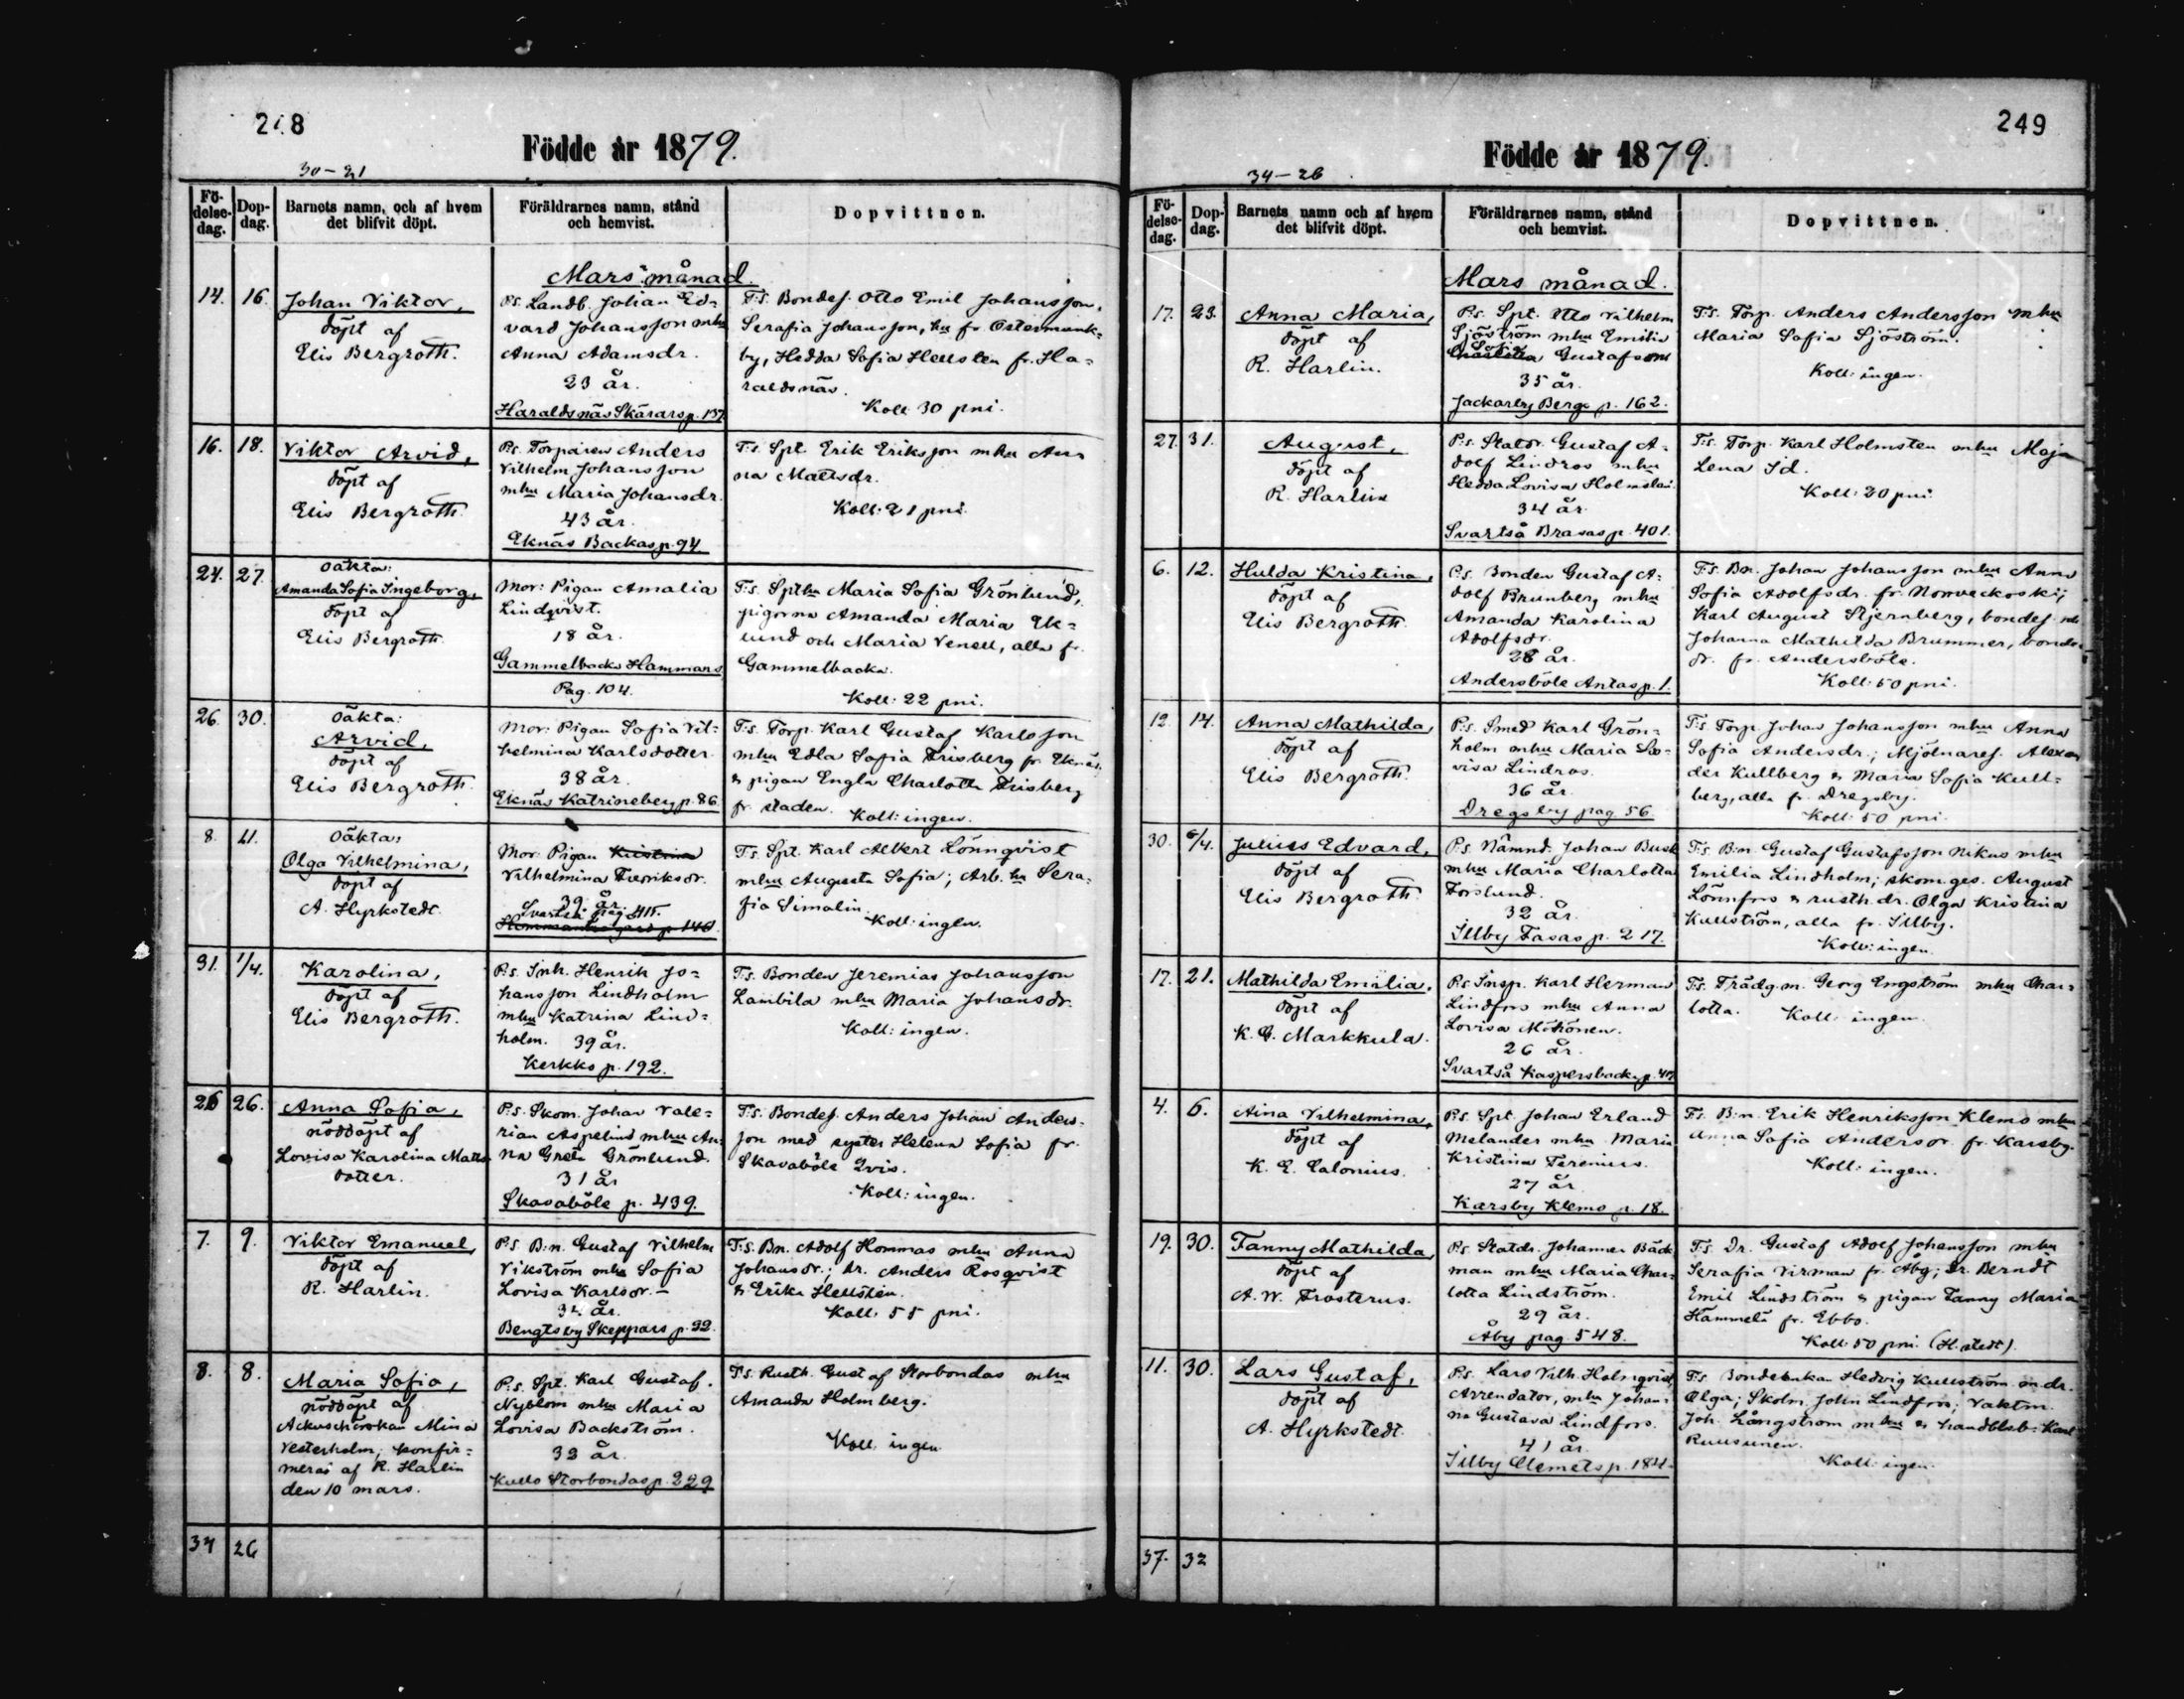 2 8
Födde år 1879.
30-21
Fö-
delse-
dag.
Dop-
dag.
Barnets namn, och af hvem
det blifvit döpt.
Föräldrarnes namn, stånd
och hemvist.
Dopvittnen.
Mars månad.
14. 16.
Johan Viktor,
döpt af
Elis Bergroth.
P:s. Landb. Johan Ed-
vard Johansson mhu
Anna Adamsdr.
23 år.
Haraldsnäs Skärars p. 137
T:s. Bondes. Otto Emil Johansson,
Serafia Johansson, hu fr. Östermunk-
by, Hedda Sofia Hellsten fr. Ha-
raldsnäs.
Koll: 30 pni.
16. 18.
Viktor Arvid,
döpt af
Elis Bergroth.
P:s. Torparen Anders
Vilhelm Johansson
mhu Maria Johansdr.
43 år.
Eknäs Backas p. 94.
T:s. Spt. Erik Eriksson mhu An-
na Mattsdr.
Koll: 21 pni.
24. 27.
Oäkta:
Amanda Sofia Ingeborg,
döpt af
Elis Bergroth.
Mor: Pigan Amalia
Lindqvist.
18 år.
Gammelbacka Hammars
Pag. 104.
T:s. Spthu Maria Sofia Grönlund,
pigorna Amanda Maria Ek-
lund och Maria Venell, alla fr.
Gammelbacka.
Koll: 22 pni.
26. 30.
Oäkta:
Arvid,
döpt af
Elis Bergroth.
Mor: Pigan Sofia Vil-
helmina Karlsdotter
38 år.
Eknäs Katrineberg p. 86.
T:s. Torp. Karl Gustaf Karlsson
mhu Edla Sofia Frisberg fr. Eknäs
& pigan Engla Charlotta Frisberg
fr. staden.
Koll: ingen.
8. 11.
Oäkta:
Olga Vilhelmina,
döpt af
A. Hyrkstedt.
Mor: Pigan Kristina
Vilhelmina Fredriksdr.
39 år.
Svartså pag. 415.
T:s. Spt. Karl Albert Lönnqvist
mhu Augusta Sofia; Arb. hu Sera-
fia Simalin.
Koll: ingen.
31. 1/4.
Karolina,
döpt af
Elis Bergroth.
P:s. Inh. Henrik Jo-
hansson Lindholm
mhu Katrina Lind-
holm. 39 år.
Kerkko p. 192.
T:s. Bonden Jeremias Johansson
Lambila mhu Maria Johansdr.
Koll: ingen.
26 26.
Anna Sofia,
nöddöpt af
Lovisa Karolina Matts-
dotter.
P:s. Skom. Johan Vale-
rian Aspelind mhu An-
na Greta Grönlund.
31 år
Skavaböle p. 439.
T:s. Bondes. Anders Johan Anders-
son med syster Helena Sofia fr.
Skavaböle Qvis.
Koll: ingen.
7. 9.
Viktor Emanuel,
döpt af
R. Harlin.
P:s. B:n. Gustaf Vilhelm
Vikström mhu Sofia
Lovisa Karlsdr. -
34 år.
Bengtsby Skeppars p. 92.
T:s. Bn. Adolf Hommas mhu Anna
Johansdr.; dr. Anders Rosqvist
& Erika Hellsten.
Koll: 55 pni.
8. 8.
Maria Sofia,
nöddöpt af
Ackuschörskan Mina
Vesterholm; konfir-
meras af R. Harlin
den 10 mars.
P:s. Spt. Karl Gustaf
Nyblom mhu Maria
Lovisa Backström.
32 år.
Kullo Storbondas p. 229
T:s. Rusth. Gustaf Storbondas mhu
Amanda Holmberg.
Koll. ingen
34 26
249
Födde år 1879.
34-26
Fö-
delse-
dag.
Dop-
dag.
Barnets namn och af hvem
det blifvit döpt.
Föräldrarnes namn, stånd
och hemvist.
Dopvittnen.
Mars månad.
17. 23.
Anna Maria,
döpt af
R. Harlin.
P:s. Spt. Otto Vilhelm
Sjöström mhu Emilia
Sofia Gustafsdr
35 år.
Jackarby Berge p. 162.
T:s. Torp. Anders Andersson mhu
Maria Sofia Sjöström.
Koll: ingen.
27. 31.
August,
döpt af
R. Harlin
P:s. Statdr. Gustaf A-
dolf Lindros mhu
Hedda Lovisa Holmsten.
34 år
Svartså Brasas p. 401.
T:s. Torp. Karl Holmsten mhu Maja
Lena Id.
Koll: 20 pni.
6. 12.
Hulda Kristina,
döpt af
Elis Bergroth.
P:s. Bonden Gustaf A-
dolf Brunberg mhu
Amanda Karolina
Adolfsdr.
28 år.
Andersböle Antas p. 1.
T:s. Bn. Johan Johansson mhu Anna
Sofia Adolfsdr. fr. Norveckoski;
Karl August Stjernberg, bondes. och
Johanna Mathilda Brummer, bonde-
dr. fr. Andersböle.
Koll: 50 pni.
12. 14.
Anna Mathilda,
döpt af
Elis Bergroth.
P:s. Smed Karl Grön-
holm mhu Maria Lo-
visa Lindros.
36 år
Dregsby pag. 56
T:s. Torp. Johan Johansson mhu Anna
Sofia Andersdr.; Mjölnares. Alexan
der Kullberg & Maria Sofia Kull-
berg, alla fr. Dregsby.
Koll: 50 pni.
30. 6/4.
Julius Edvard,
döpt af
Elis Bergroth.
P:s. Nämnd. Johan Busk
mhu Maria Charlotta
Forslund.
32 år.
Illby Fasas p. 217.
T:s. B:n. Gustaf Gustafsson Nikus mhu
Emilia Lindholm; skom.ges. August
Lönnfors & rusth.dr. Olga Kristina
Kullström, alla fr. Illby.
Koll: ingen
17. 21.
Mathilda Emilia,
döpt af
K. G. Markkula.
P:s. Insp. Karl Herman
Lindfors mhu Anna
Lovisa Mökönen.
26 år.
Svartså Kaspersback p. 47
T:s. Trädg.m. Georg Engström mhu Char-
lotta.
Koll: ingen
4. 6.
Aina Vilhelmina,
döpt af
K. E. Calonius.
P:s. Spt. Johan Erland
Melander mhu Maria
Kristina Ferenius.
27 år
Karsby Klemo p. 18.
T:s. B:n. Erik Henriksson Klemo mhu
Anna Sofia Andersdr. fr. Karsby.
Koll: ingen.
19. 30.
Fanny Mathilda,
döpt af
A. W. Frosterus.
P:s. Statdr. Johannes Bäck
man mhu Maria Char-
lotta Lindström.
29 år.
Åby pag. 548.
T:s. Dr. Gustaf Adolf Johansson mhu
Serafia Virman fr. Åby; Dr. Berndt
Emil Lindström & pigan Fanny Maria
Hammelä fr. Ebbo.
Koll: 50 pni. (H.stedt).
11. 30.
Lars Gustaf,
döpt af
A. Hyrkstedt.
P:s. Lars Vilh. Holmqvist,
Arrendator, mhu Johan-
na Gustava Lindfors.
41 år
Illby Clemets p. 184.
T:s Bondeenkan Hedvig Kullström m.dr.
Olga; Skolm. John Lindfors; Vaktm.
Joh. Långström mhu & handblsb. Karl
Ruusunen.
Koll: ingen.
37. 32